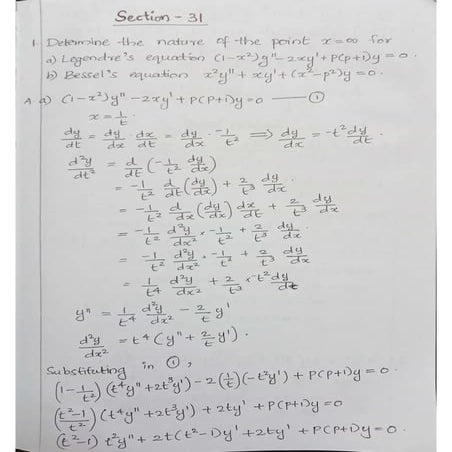 Section - 31
1. Determine the nature of the point x=∞ for
a) Legendre's equation (1-x²)y"-2xy'+P(P+1)y=0.
b) Bessel's equation x²y"+xy'+(x²-p²)y=0.
A a) (1-x²)y"-2xy'+P(P+1)y=0 —— ①
x = 1/t.
dy/dt = dy/dx · dx/dt = dy/dx · -1/t² ⇒ dy/dx = -t² dy/dt
d²y/dt² = d/dt (-1/t² dy/dx)
= -1/t² d/dt (dy/dx) + 2/t³ dy/dx.
= -1/t² d/dx (dy/dx) dx/dt + 2/t³ dy/dx
= -1/t² d²y/dx² × -1/t² + 2/t³ dy/dx
= -1/t² d²y/dx² × -1/t² + 2/t³ dy/dx
= 1/t⁴ d²y/dx² + 2/t³ × -t² dy/dt
y" = 1/t⁴ d²y/dx² - 2/t y'
d²y/dx² = t⁴(y" + 2/t y').
Substituting in ①,
(1-1/t²)(t⁴y"+2t³y') - 2(1/t)(-t²y') + P(P+1)y = 0.
(t²-1/t²)(t⁴y"+2t³y') + 2ty' + P(P+1)y = 0
(t²-1) t²y" + 2t(t²-1)y' + 2ty' + P(P+1)y = 0.